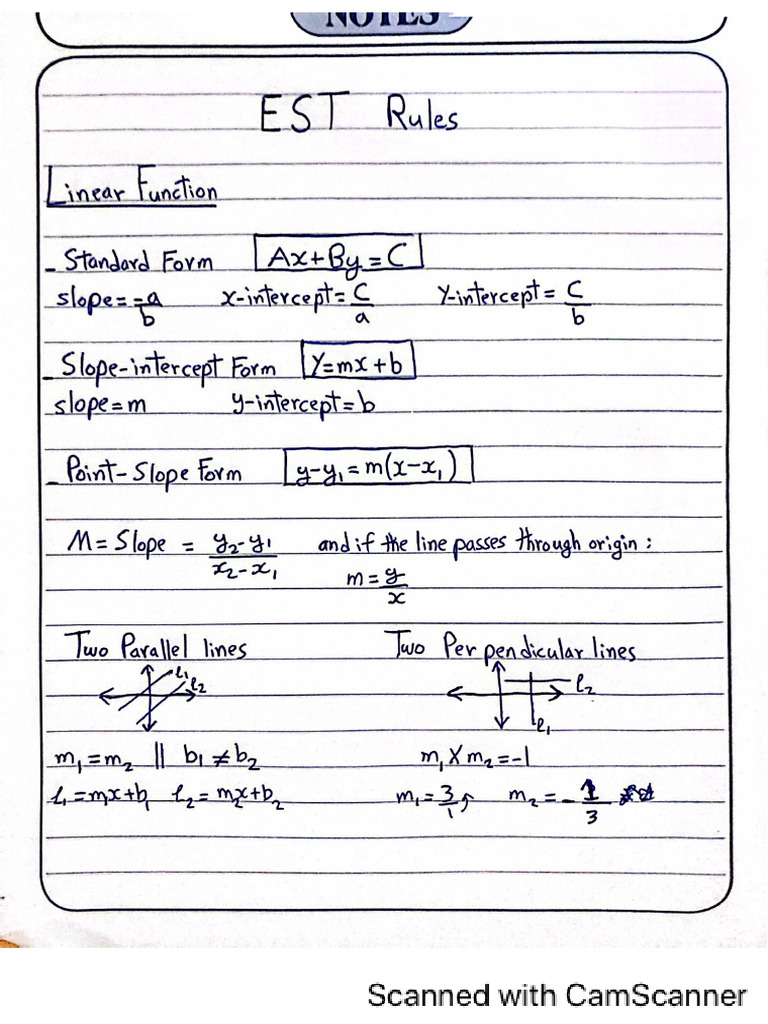 NOTES
EST Rules
Linear Function
- Standard Form Ax+By=C
slope=-a/b x-intercept=C/a Y-intercept=C/b
- Slope-intercept Form Y=mx+b
slope=m y-intercept=b
- Point-Slope Form y-y₁=m(x-x₁)
M=Slope = y₂-y₁/x₂-x₁ and if the line passes through origin:
m=y/x
Two Parallel lines Two Perpendicular lines
ℓ₁ ℓ₂ ℓ₂ ℓ₁
m₁=m₂ || b₁≠b₂ m₁×m₂=-1
ℓ₁=m₁x+b₁ ℓ₂=m₂x+b₂ m₁=3/1 m₂=-1/3
Scanned with CamScanner